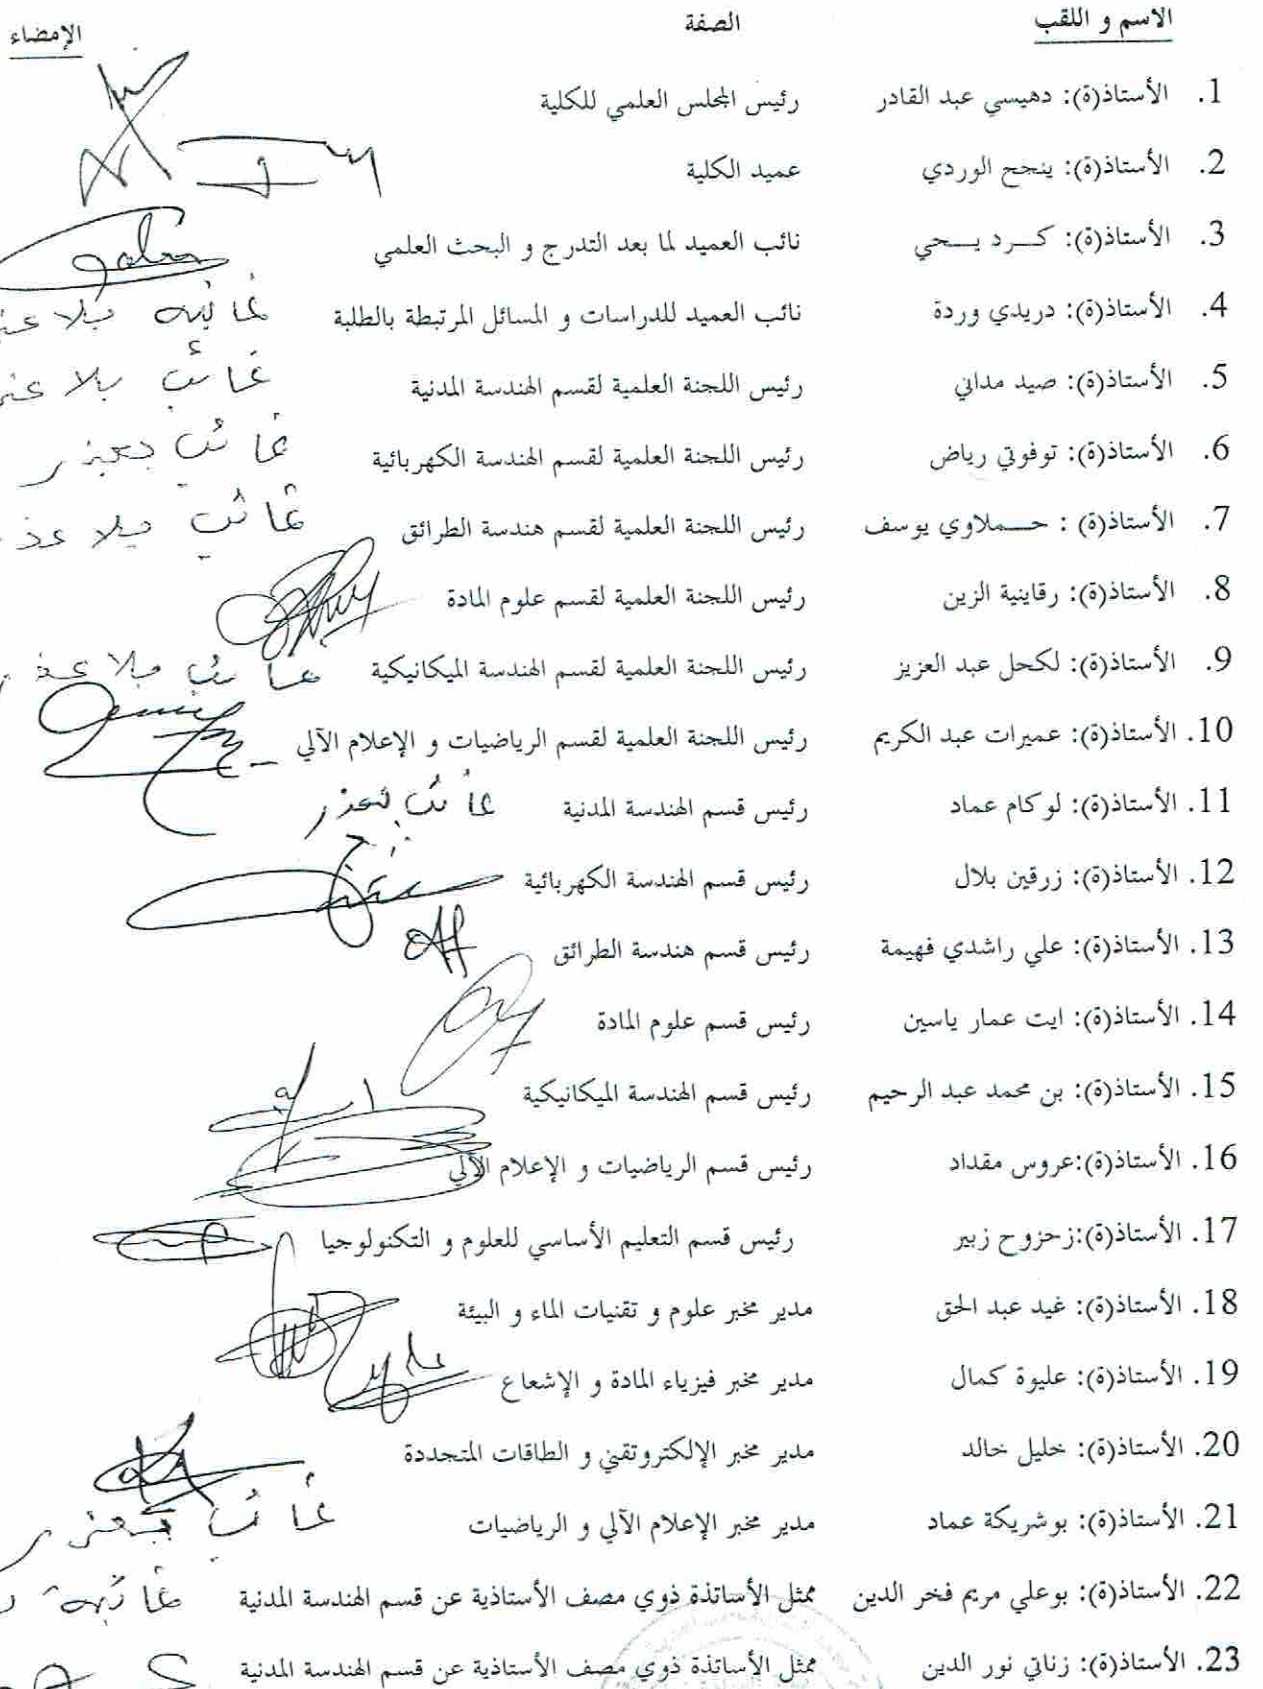 الاسم و اللقب الصفة الإمضاء
1. الأستاذ(ة): دهيسي عبد القادر رئيس المجلس العلمي للكلية
2. الأستاذ(ة): ينجح الوردي عميد الكلية
3. الأستاذ(ة): كــرد يــحي نائب العميد لما بعد التدرج و البحث العلمي
4. الأستاذ(ة): دريدي وردة نائب العميد للدراسات و المسائل المرتبطة بالطلبة غائبة بلا
5. الأستاذ(ة): صيد مداني رئيس اللجنة العلمية لقسم الهندسة المدنية غائب بلا
6. الأستاذ(ة): توفوتي رياض رئيس اللجنة العلمية لقسم الهندسة الكهربائية غائب بعذر
7. الأستاذ(ة) : حــملاوي يوسف رئيس اللجنة العلمية لقسم هندسة الطرائق غائب بلا عذ
8. الأستاذ(ة): رقاينية الزين رئيس اللجنة العلمية لقسم علوم المادة
9. الأستاذ(ة): لكحل عبد العزيز رئيس اللجنة العلمية لقسم الهندسة الميكانيكية غائب بلا عذر
10. الأستاذ(ة): عميرات عبد الكريم رئيس اللجنة العلمية لقسم الرياضيات و الإعلام الآلي
11. الأستاذ(ة): لوكام عماد رئيس قسم الهندسة المدنية غائب بعذر
12. الأستاذ(ة): زرقين بلال رئيس قسم الهندسة الكهربائية
13. الأستاذ(ة): علي راشدي فهيمة رئيس قسم هندسة الطرائق
14. الأستاذ(ة): ايت عمار ياسين رئيس قسم علوم المادة
15. الأستاذ(ة): بن محمد عبد الرحيم رئيس قسم الهندسة الميكانيكية
16. الأستاذ(ة):عروس مقداد رئيس قسم الرياضيات و الإعلام الآلي
17. الأستاذ(ة):زحزوح زبير رئيس قسم التعليم الأساسي للعلوم و التكنولوجيا
18. الأستاذ(ة): غيد عبد الحق مدير مخبر علوم و تقنيات الماء و البيئة
19. الأستاذ(ة): عليوة كمال مدير مخبر فيزياء المادة و الإشعاع
20. الأستاذ(ة): خليل خالد مدير مخبر الإلكتروتقني و الطاقات المتجددة
21. الأستاذ(ة): بوشريكة عماد مدير مخبر الإعلام الآلي و الرياضيات غائب بعذر
22. الأستاذ(ة): بوعلي مريم فخر الدين ممثل الأساتذة ذوي مصف الأستاذية عن قسم الهندسة المدنية غائبة
23. الأستاذ(ة): زناتي نور الدين ممثل الأساتذة ذوي مصف الأستاذية عن قسم الهندسة المدنية